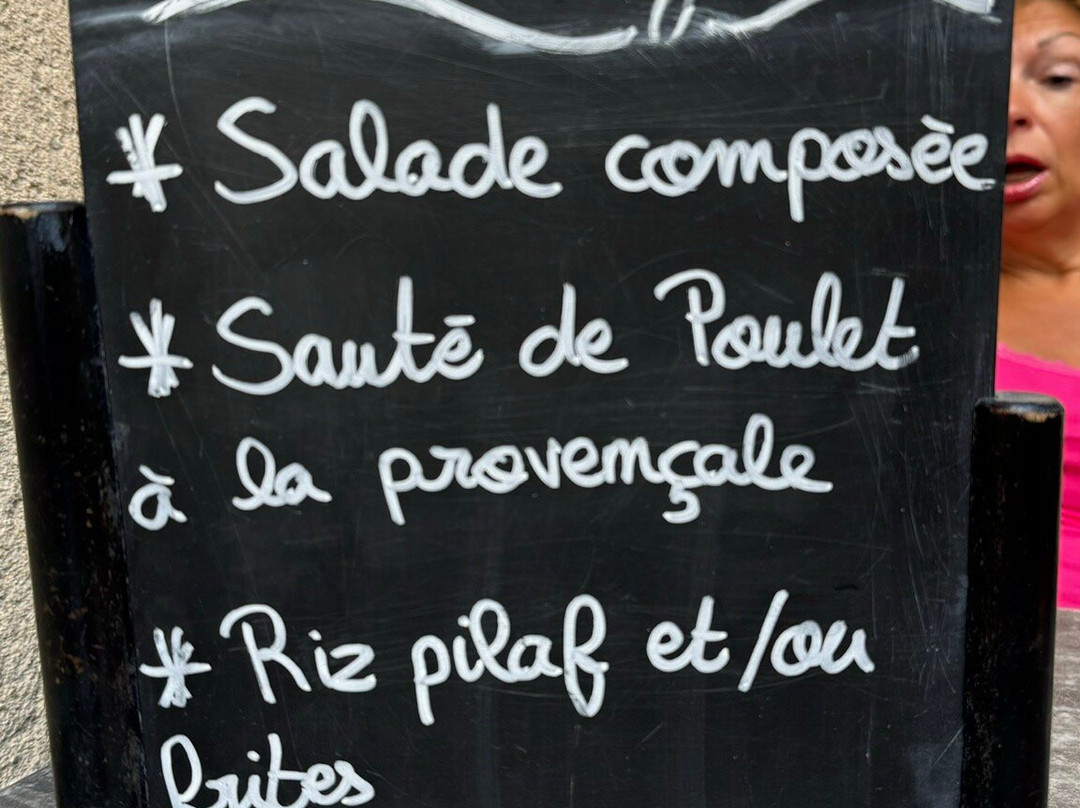 * Salade composée
* Sauté de Poulet
à la provençale
* Riz pilaf et/ou
frites